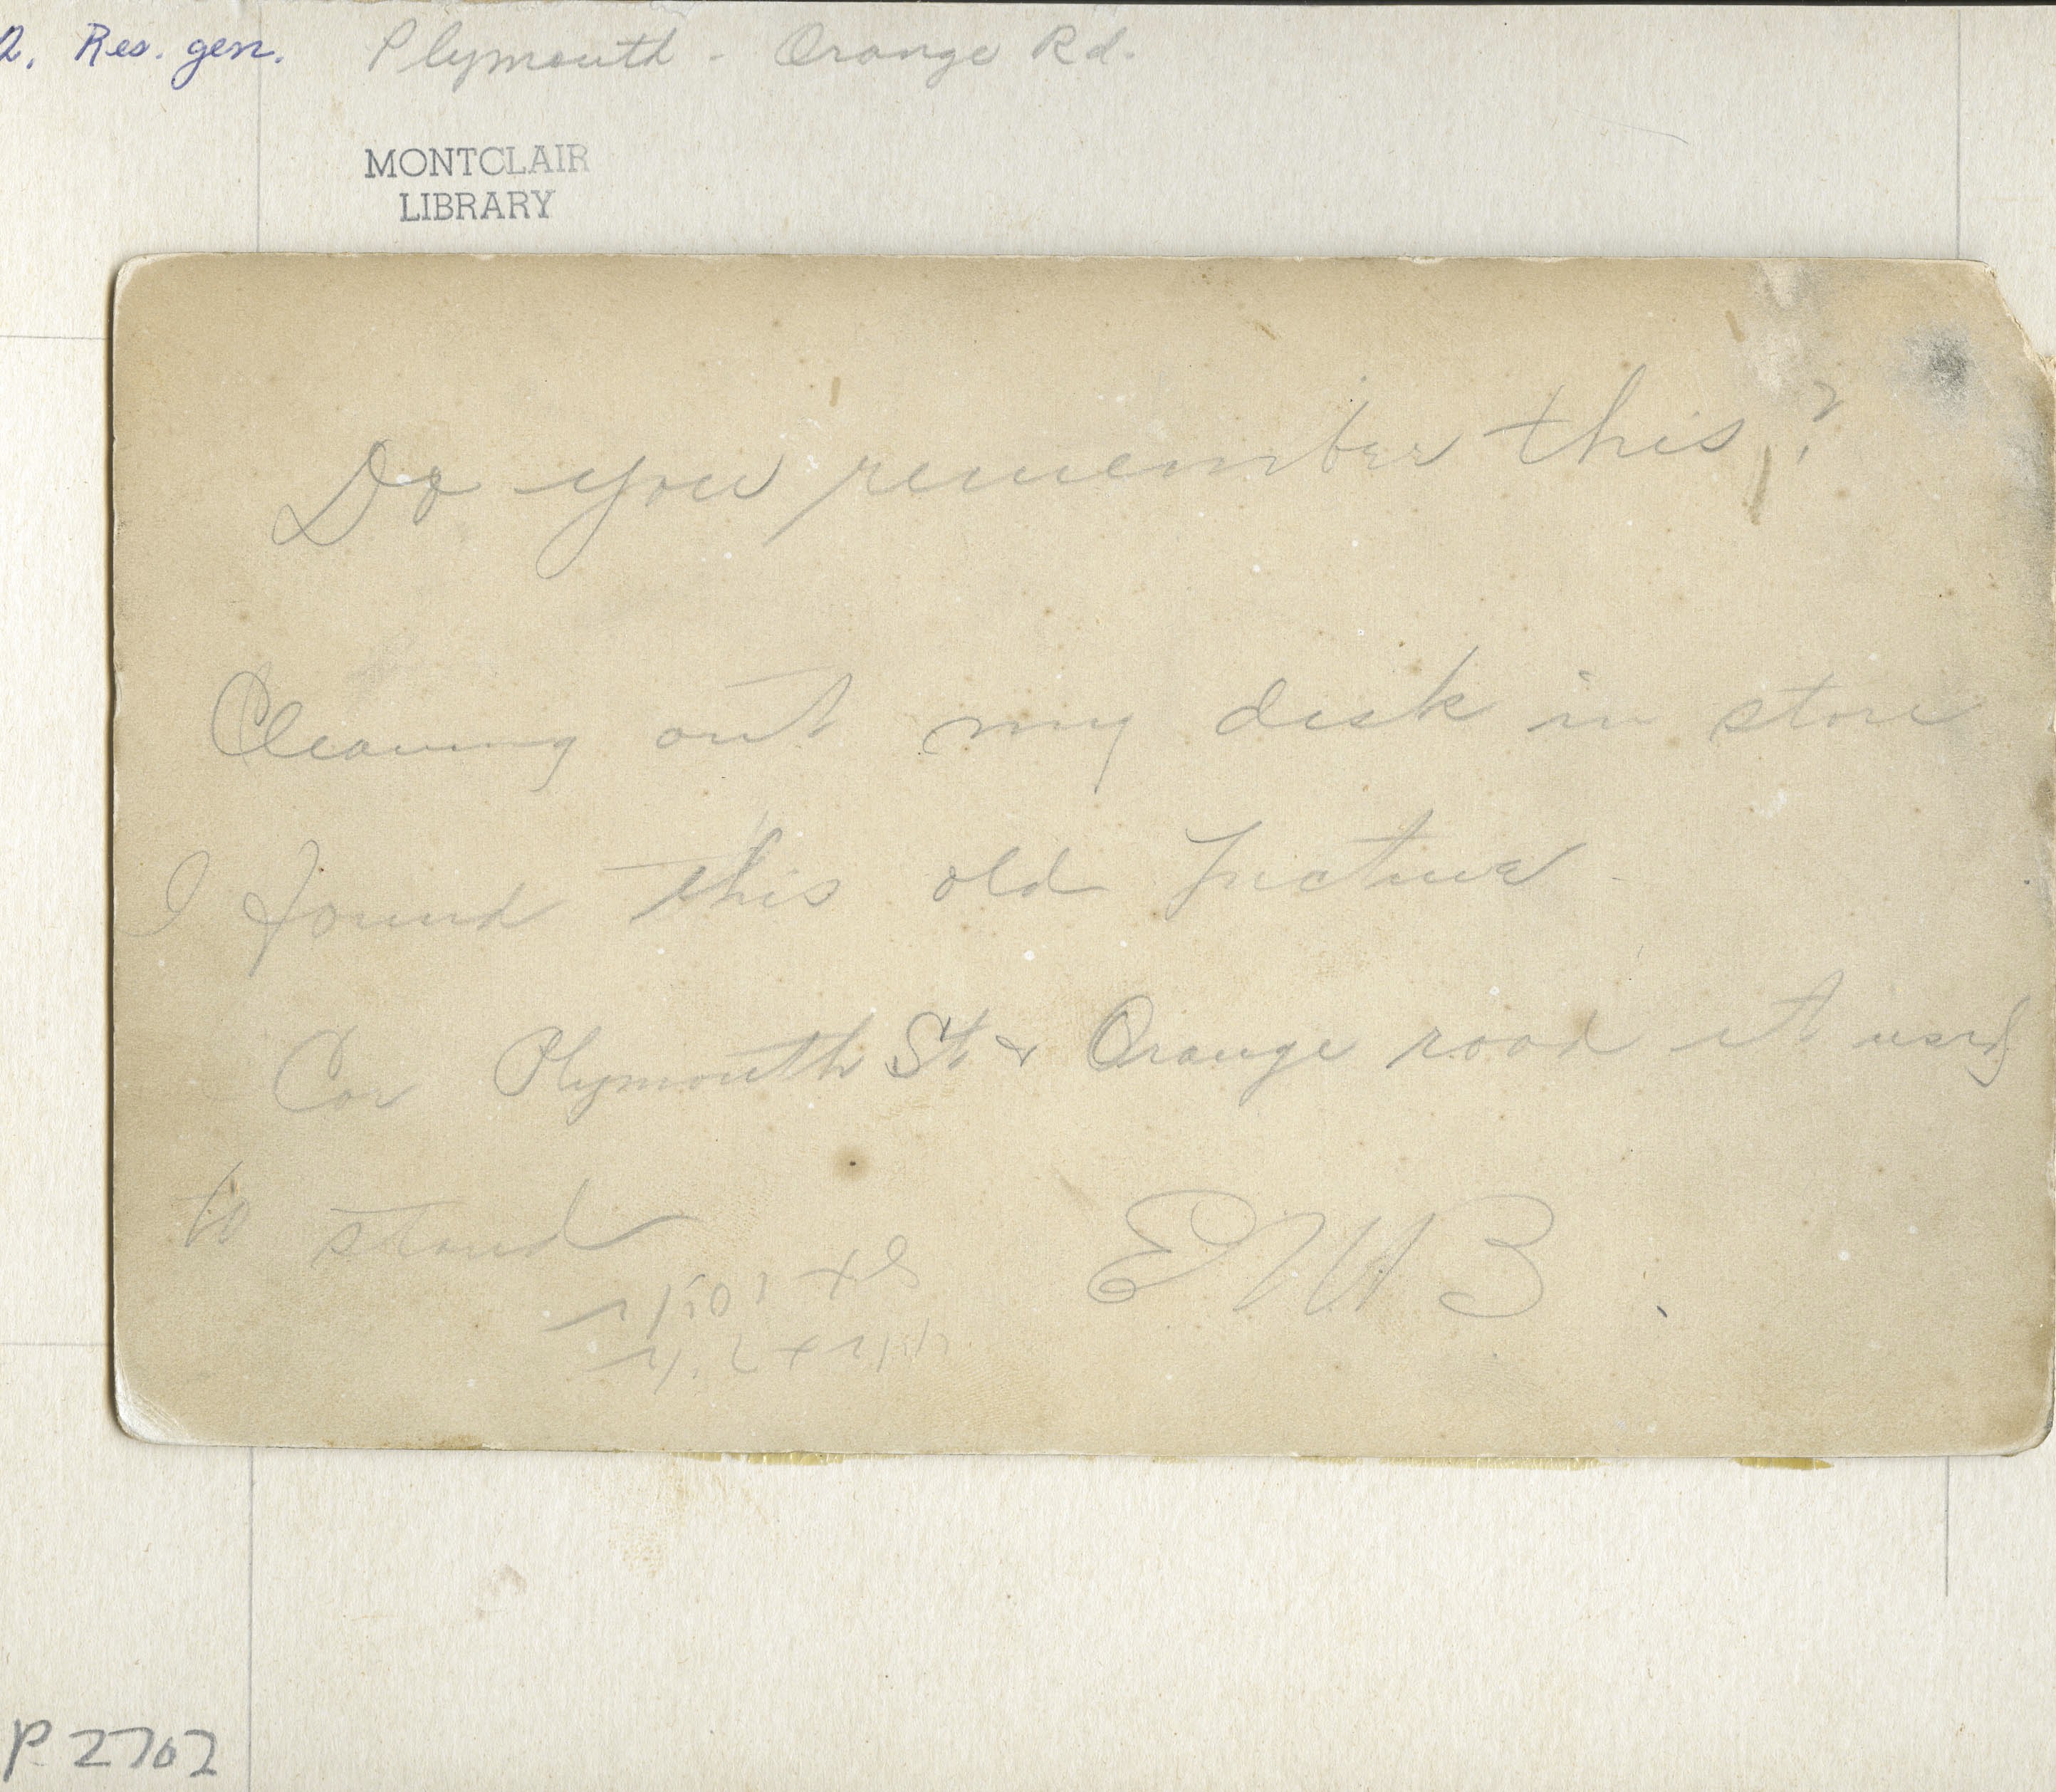 2. Res. gen. Plymouth - Orange Rd.
MONTCLAIR
LIBRARY
Do you remember this?
Cleaning out my desk in store
I found this old picture
Cor Plymouth St & Orange road it used
to stand
EWB
P2702